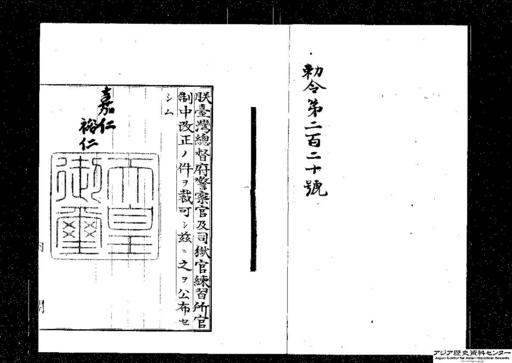 勅令第二百二十號
朕臺灣總督府警察官及司獄官練習所官
制中改正ノ件ヲ裁可シ玆ニ之ヲ公布セ
シム
嘉仁
裕仁
天皇
御璽
内
閣
アジア歴史資料センター
Japan Center for Asian Historical Records